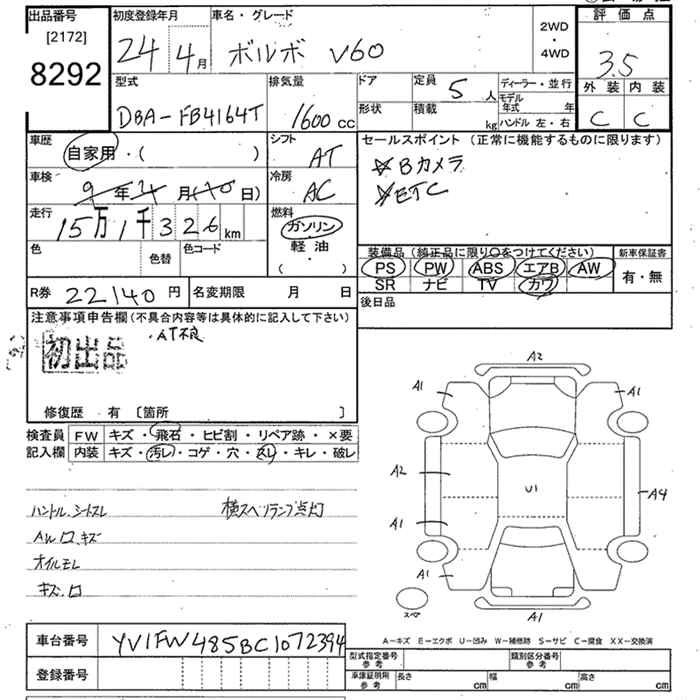 出品番号
[2172]
8292
初度登録年月
24 4月
車名・グレード
ボルボ V60
2WD
・
4WD
評価点
3.5
外装 内装
C C
型式
DBA-FB4164T
排気量
1600 cc
ドア
形状
定員 5 人
積載 kg
ディーラー・並行
モデル年式 年
ハンドル 左・右
車歴
自家用・( )
シフト
AT
セールスポイント (正常に機能するものに限ります)
☆Bカメラ
☆ETC
車検
9年 月( 日)
冷房
AC
走行
15万1千326km
燃料
ガソリン
軽油
( )
色
色替
色コード
装備品 (純正品に限り○をつけてください)
PS PW ABS エアB AW
SR ナビ TV カワ
新車保証書
有・無
R券 22140円
名変期限 月 日
後日品
注意事項申告欄(不具合内容等は具体的に記入して下さい)
・AT不良
初出品
修復歴 有 〔箇所 〕
検査員
記入欄
FW キズ・飛石・ヒビ割・リペア跡・×要
内装 キズ・汚レ・コゲ・穴・スレ・キレ・破レ
ハンドル、シートスレ
横スベリランプ点灯
AW ロ、キズ
オイルモレ
キズ、ロ
A2
A1
A1
A2
U1
A4
A1
A1
A1
スペア
A-キズ E-エクボ U-凹み W-補修跡 S-サビ C-腐食 XX-交換済
車台番号 YV1FW485BC1072394
登録番号
型式指定番号 参考
類別区分番号 参考
車庫証明用 参考
長さ cm
幅 cm
高さ cm